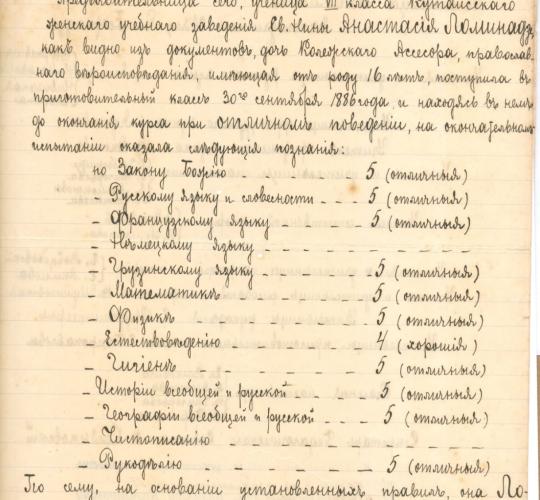 Предъявительница сего, ученица VII класса Кутаисскаго
женскаго учебнаго заведенія Св. Нины Анастасія Ломинадзе,
какъ видно изъ документовъ, дочь Колежскаго Ассесора, православ-
наго вѣроисповѣданія, имѣющая отъ роду 16 лѣтъ, поступила въ
приготовительный классъ 30го сентября 1886 года, и находясь въ немъ
до окончанія курса при отличномъ поведеніи, на окончательномъ
испытаніи оказала слѣдующія познанія:
по Закону Божію - - - - - 5 (отличныя)
- Русскому языку и словесности - - - 5 (отличныя)
- Французскому языку - - - - 5 (отличныя)
- Нѣмецкому языку - - - - - - - - -
- Грузинскому языку - - - - - 5 (отличныя)
- Математикѣ - - - - - - 5 (отличныя)
- Физикѣ - - - - - - - 5 (отличныя)
- Естествовѣденію - - - - - 4 (хорошія)
- Гигіенѣ - - - - - - - 5 (отличныя)
- Исторіи всеобщей и русской - - - 5 (отличныя)
- Географіи всеобщей и русской - - - 5 (отличныя)
- Чистописанію - - - - - - - - -
- Рукодѣлію - - - - - - 5 (отличныя)
По сему, на основаніи установленныхъ правилъ, она Ло-